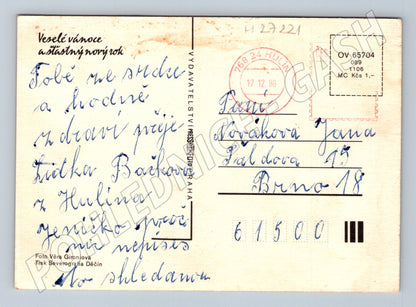 Veselé vánoce
a šťastný nový rok
H 27221
Tobě ze srdce
a hodně
zdraví přeje
Zidtka Bačková
z Hulína
Jeníčko proč
mi nepíšeš
Na shledanou
Foto Věra Gironiová
Tisk Severografia Děčín
VYDAVATELSTVÍ PRAHA
768 24 HULÍN
17.12.96
OV 65704
099
1106
MC Kčs 1,-
Paní
Nováková Jana
Paldova 15
Brno 18
61500
POHLEDNICE GASH